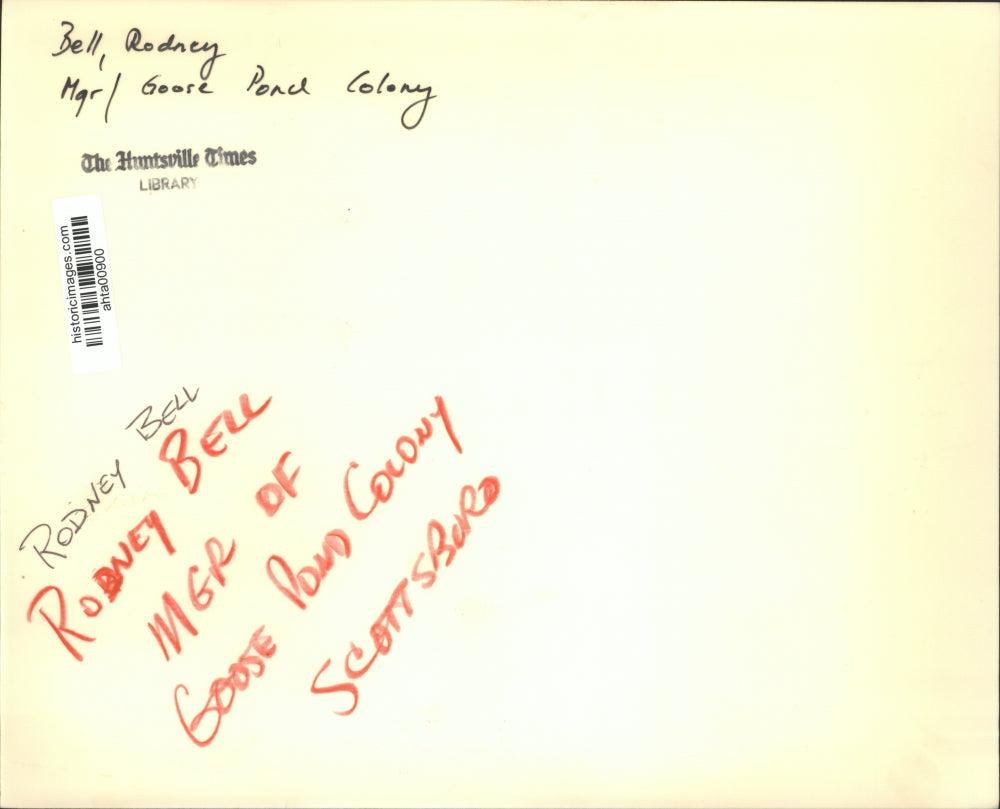 Bell, Rodney
Mgr/ Goose Pond Colony
The Huntsville Times
LIBRARY
historicimages.com
ahta00900
RODNEY BELL
RODNEY BELL
MGR OF
GOOSE POND COLONY
SCOTTSBORO